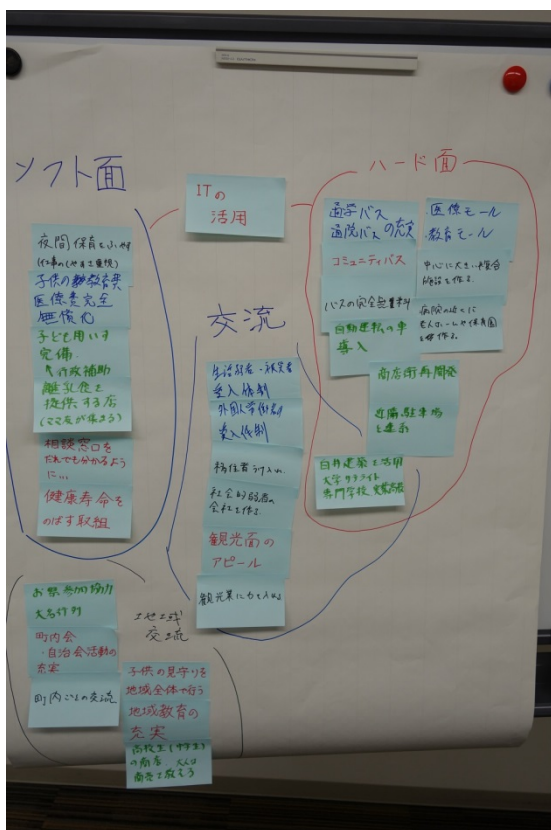 ソフト面
ITの
活用
ハード面
夜間保育をふやす
子供の教育費
医療費完全
無償化
子ども用いす
完備
行政補助
離乳食を
提供する店
(ママ友が集まる)
相談窓口を
だれでも分かるよう
に…
健康寿命を
のばす取組
交流
生活弱者・被災者
受入体制
外国人労働者
受入体制
移住者うけ入れ
社会的弱者の
会社を作る
観光面の
アピール
観光業に力を入れる
通学バス
通院バスの充実
コミュニティバス
バスの完全無料
自動運転の車
導入
・医療モール
・教育モール
中心に大きい複合
施設を作る
病院の近くに
老人ホームや保育園
を作る
商店街再開発
近隣駐車場
を建設
空
大学サテライト
専門学校
地域
交流
お祭参加協力
大名行列
町内会
・自治会活動の
充実
町内ごとの交流
子供の見守りを
地域全体で行う
地域教育の
充実
高校生(中学生)
の商店
商売で教えろう